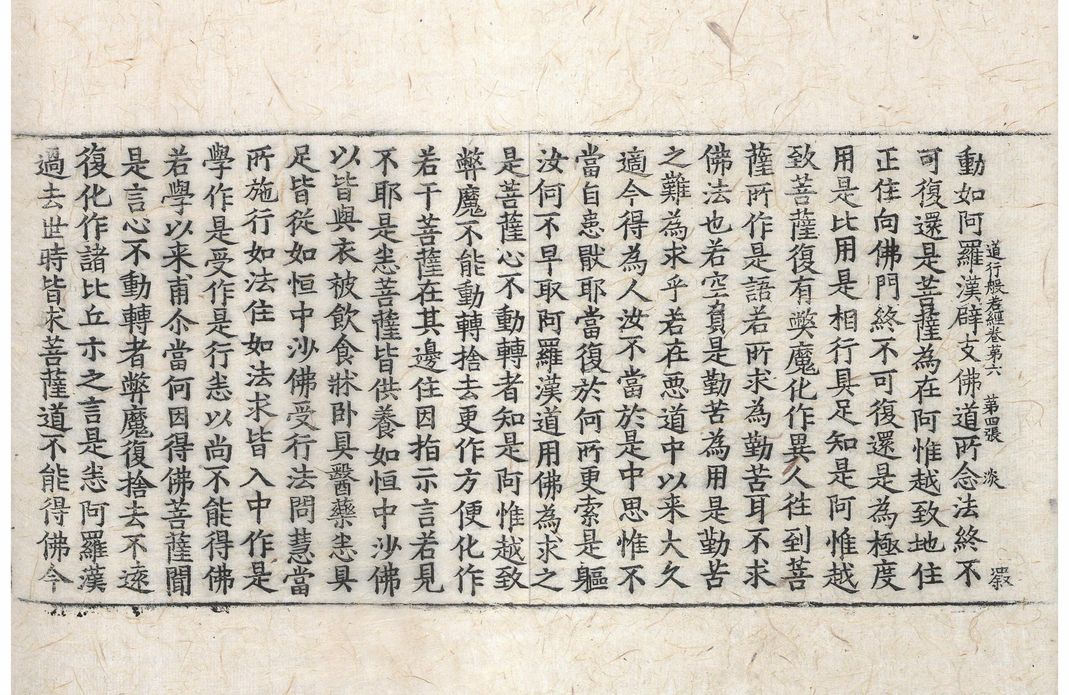 道行般若經卷第六 第四張 淡
動如阿羅漢辟支佛道所念法終不
可復還是菩薩為在阿惟越致地住
正住向佛門終不可復還是為極度
用是比用是相行具足知是阿惟越
致菩薩復有弊魔化作異人往到菩
薩所作是語若所求為勤苦耳不求
佛法也若空負是勤苦為用是勤苦
之難為求乎若在惡道中以来大久
適今得為人汝不當於是中思惟不
當自患猒耶當復於何所更索是軀
汝何不早取阿羅漢道用佛為求之
是菩薩心不動轉者知是阿惟越致
弊魔不能動轉捨去更作方便化作
若干菩薩在其邊住因指示言若見
不耶是悉菩薩皆供養如恒中沙佛
以皆與衣被飲食牀卧具醫藥悉具
足皆從如恒中沙佛受行法問慧當
所施行如法住如法求皆入中作是
學作是受作是行悉以尚不能得佛
若學以来甫尒當何因得佛菩薩聞
是言心不動轉者弊魔復捨去不遠
復化作諸比丘示之言是悉阿羅漢
過去世時皆求菩薩道不能得佛今